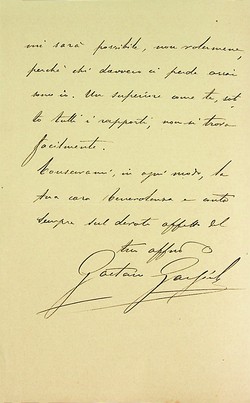 mi sarà possibile, non volermene,
perché chi davvero ci perde assai
sono io. Un superiore come te, sot-
to tutti i rapporti, non si trova
facilmente.
Conservami, in ogni modo, la
tua cara benevolenza e conta
sempre sul devoto affetto del
tuo affmo
Gaetano